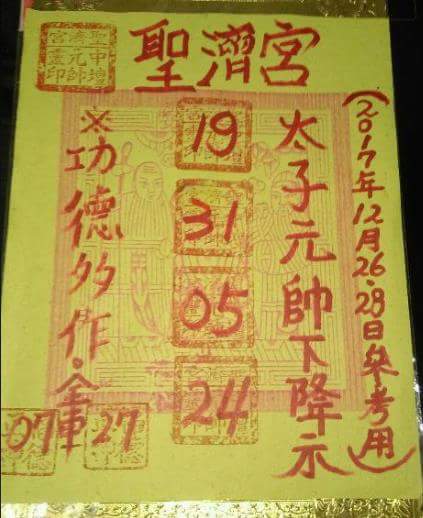 聖濟宮
聖濟宮
中壇元帥
靈印
(2017年12月26.28日參考用)
太子元帥下降示
19
31
05
24
※功德多作.金庫
07
27